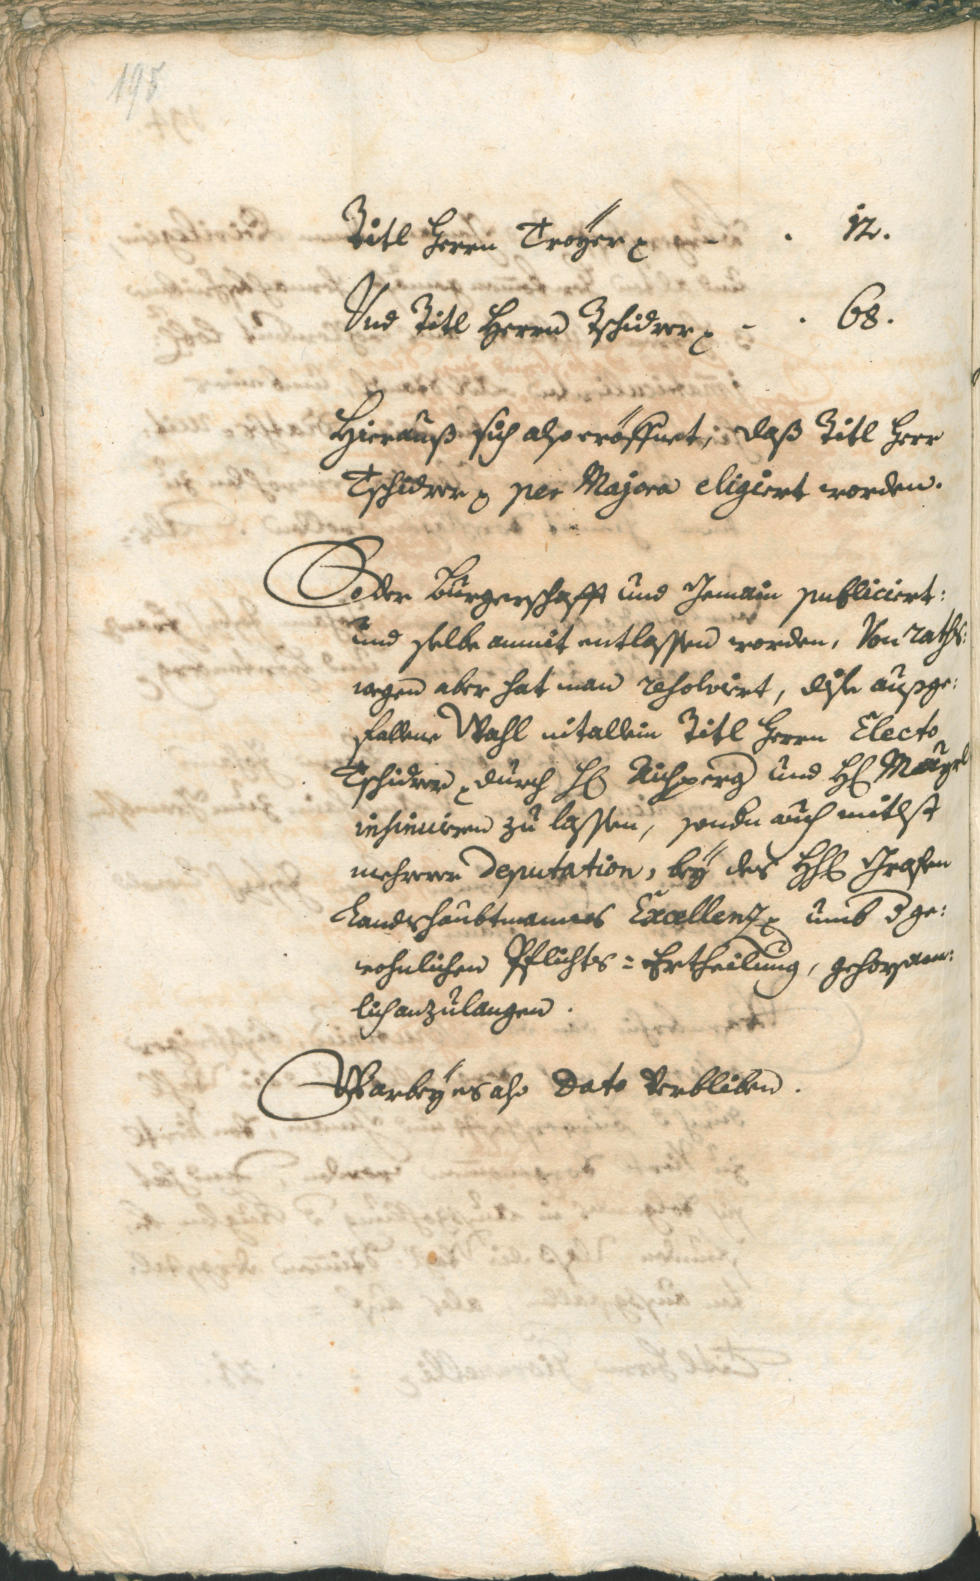 195
Titl Herrn Troÿer - . 12.
Und Titl Herrn Tschidrer - . 68.
Hierauß sich also eröffnet, daß Titl Herr
Tschidrer per Majora eligiert worden.
der Burgerschafft und Gemain publiciert:
und selbe annit entlassen worden, Von raths:
wegen aber hat man resolviert, dise außge:
fallene Wahl nit allein Titl Herrn Electo
Tschidrer, durch H und H Maÿrl
insinuiren zu lassen, sondern auch mitlst
mehrerer Deputation, beÿ des Grafen
Landtshaubtmannes Excellenz umb d ge:
wohnlichen Pflichts=Ertheilung, gehorsam:
lich anzulangen.
Warbeÿ es also Dato Verbliben.